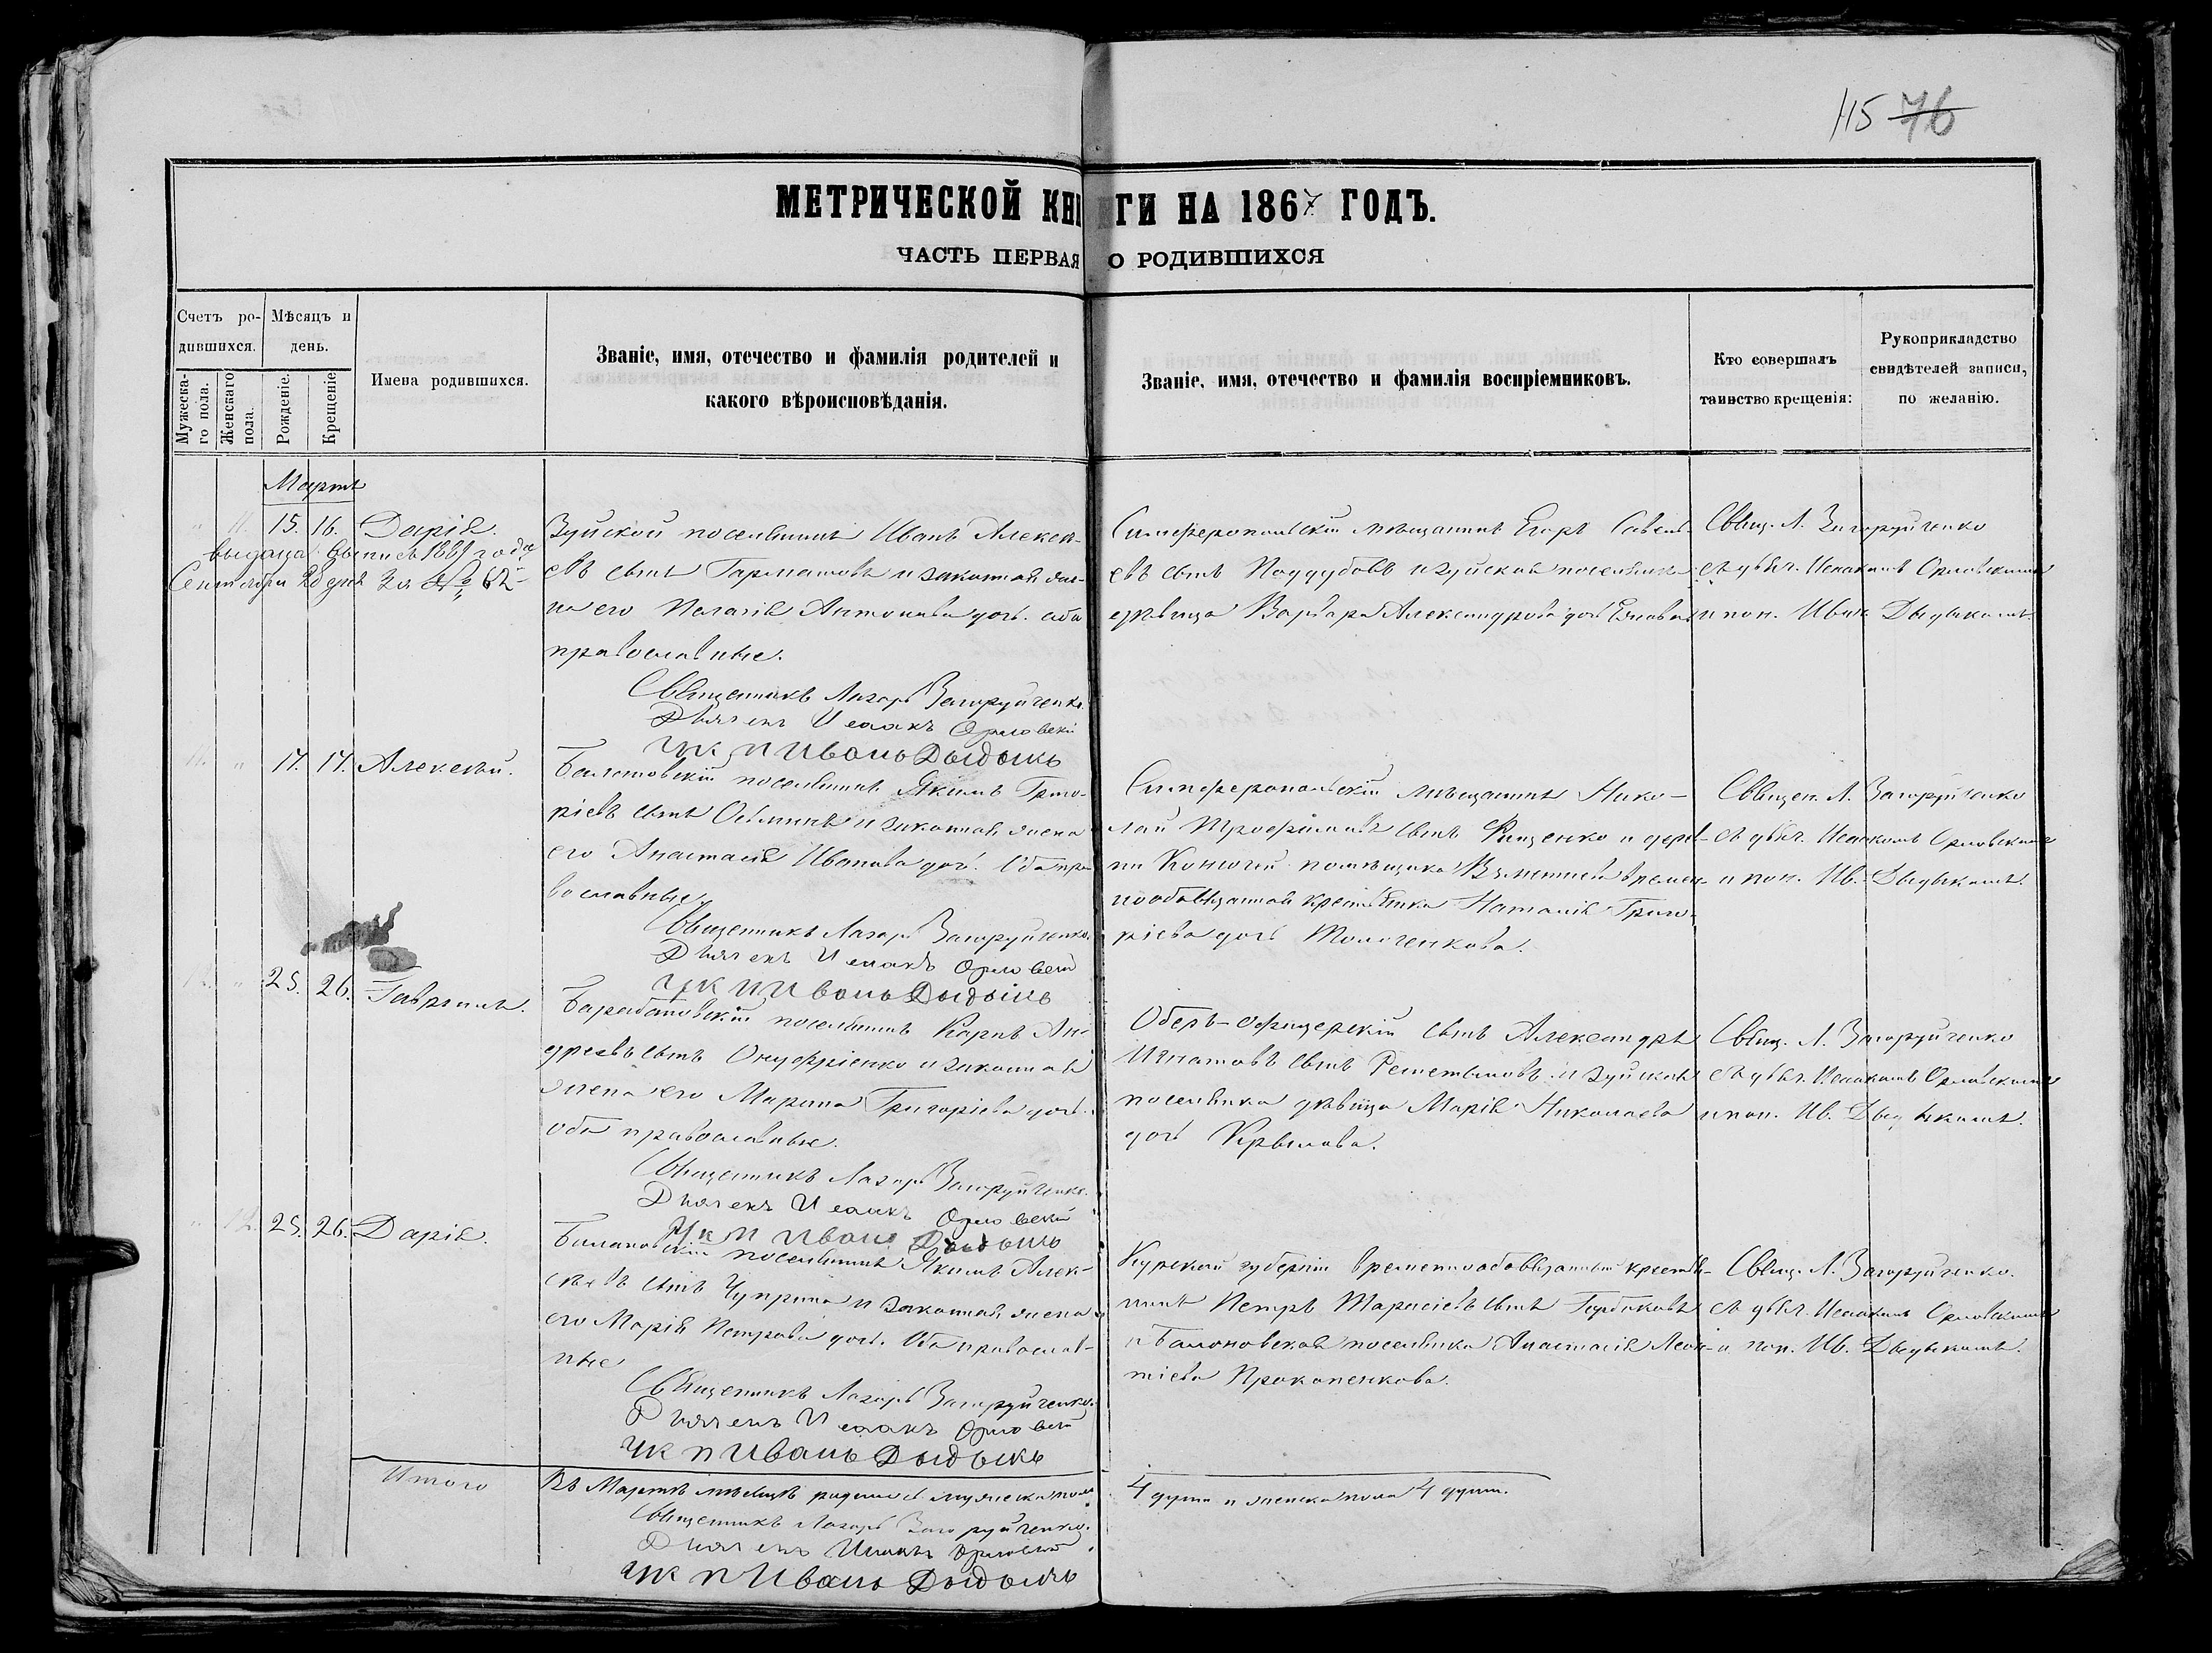 115 76
МЕТРИЧЕСКОЙ КНИГИ НА 1867 ГОДЪ.
ЧАСТЬ ПЕРВАЯ О РОДИВШИХСЯ
Счетъ ро-
дившихся.
Мужеска-
го пола.
Женскаго
пола.
Мѣсяцъ и
день.
Рожденіе.
Крещеніе
Имена родившихся.
Званіе, имя, отечество и фамилія родителей и
какого вѣроисповѣданія.
Званіе, имя, отечество и фамилія воспріемниковъ.
Кто совершалъ
таинство крещенія:
Рукоприкладство
свидѣтелей записи,
по желанію.
Мартъ
" 11. 15. 16. Дарія.
выдана выпись 1881 года
Сентября 20 дня За № 62
Зуйской поселянинъ Иванъ Алексѣ-
евъ сынъ Гармашовъ и законная же-
на его Пелагія Антонова дочь. оба
православные.
Священникъ Лазарь Загоруйченко.
Дьячекъ Исаакъ Орловскій
Иванъ Дыдыкъ
Симферопольскій мѣщанинъ Егоръ Савель-
евъ сынъ Поддубовъ и зуйская поселянка
дѣвица Варвара Александрова дочь
Свящ. Л. Загоруйченко
съ дьяч. Исаакомъ Орловскимъ
и пон. Иван. Дыдыкомъ.
11. " 17. 17. Алексѣй.
поселянинъ Якимъ Григо-
ріевъ сынъ и законная жена
его Анастасія Иванова дочь. Оба пра-
вославные.
Священникъ Лазарь Загоруйченко.
Дьячекъ Исаакъ Орловскій
Иванъ Дыдыкъ
Симферопольскій мѣщанинъ Нико-
лай Трофимовъ сынъ Фищенко и дерев-
ни помѣщика времен-
нообязанная крестьянка Наталія Григо-
ріева дочь Толоченкова.
Священ. Л. Загоруйченко
съ дьяч. Исаакомъ Орловскимъ
и пон. Ив. Дыдыкомъ.
12. " 25. 26. Гавріилъ.
поселянинъ Карпъ Ан-
дреевъ сынъ Онуфріенко и законная
жена его Марина Григоріева дочь.
оба православные.
Священникъ Лазарь Загоруйченко.
Дьячекъ Исаакъ Орловскій
Иванъ Дыдыкъ
Оберъ-офицерскій сынъ Александръ
Игнатовъ сынъ Решетиловъ и зуйская
поселянка дѣвица Марія Николаева
дочь Крылова.
Свящ. Л. Загоруйченко
съ дьяч. Исаакомъ Орловскимъ
и пон. Ив. Дыдыкомъ.
" 12. 25. 26. Дарія.
поселянинъ Якимъ Алек-
сѣевъ сынъ Чуприна и законная жена
его Марія Петрова дочь. Оба православ-
ные
Священникъ Лазарь Загоруйченко.
Дьячекъ Исаакъ Орловскій
Иванъ Дыдыкъ
Курской губерніи временнообязанный крестья-
нинъ Петръ Тарасіевъ сынъ Горбиковъ
и поселянка Анастасія Леон-
тіева Прокопенкова.
Свящ. Л. Загоруйченко.
съ дьяч. Исаакомъ Орловскимъ
и пон. Ив. Дыдыкомъ.
Итого
Въ Мартѣ мѣсяцѣ родилось мужеска пола
4 души и женска пола 4 души.
Священникъ Лазарь Загоруйченко.
Дьячекъ Исаакъ Орловскій
Иванъ Дыдыкъ